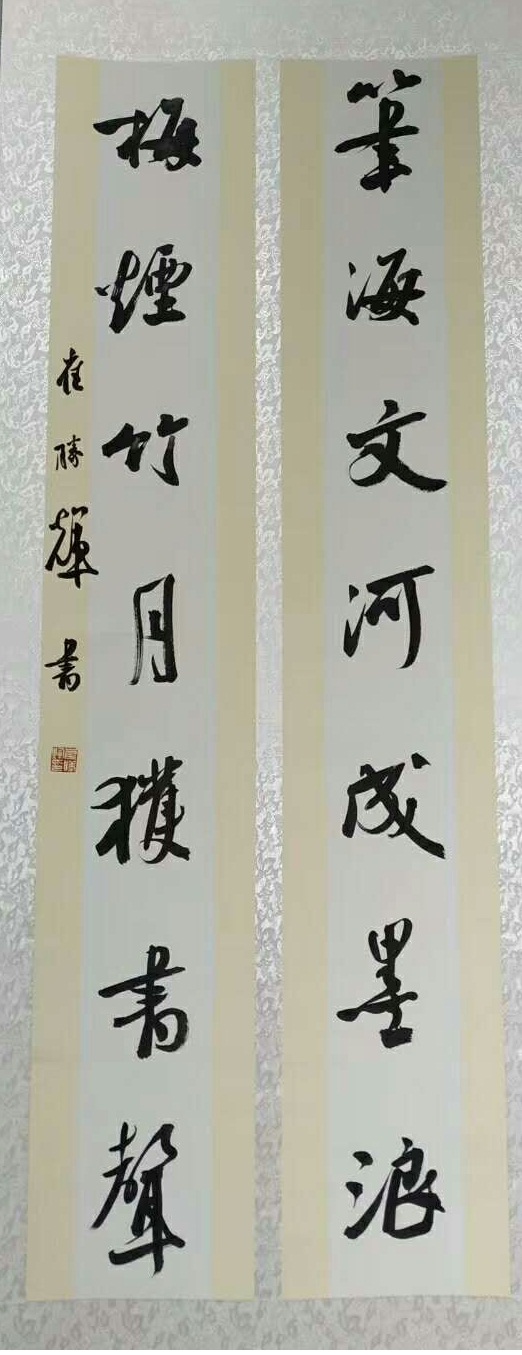 筆海文河成墨浪
梅煙竹月獲書聲
崔勝輝書